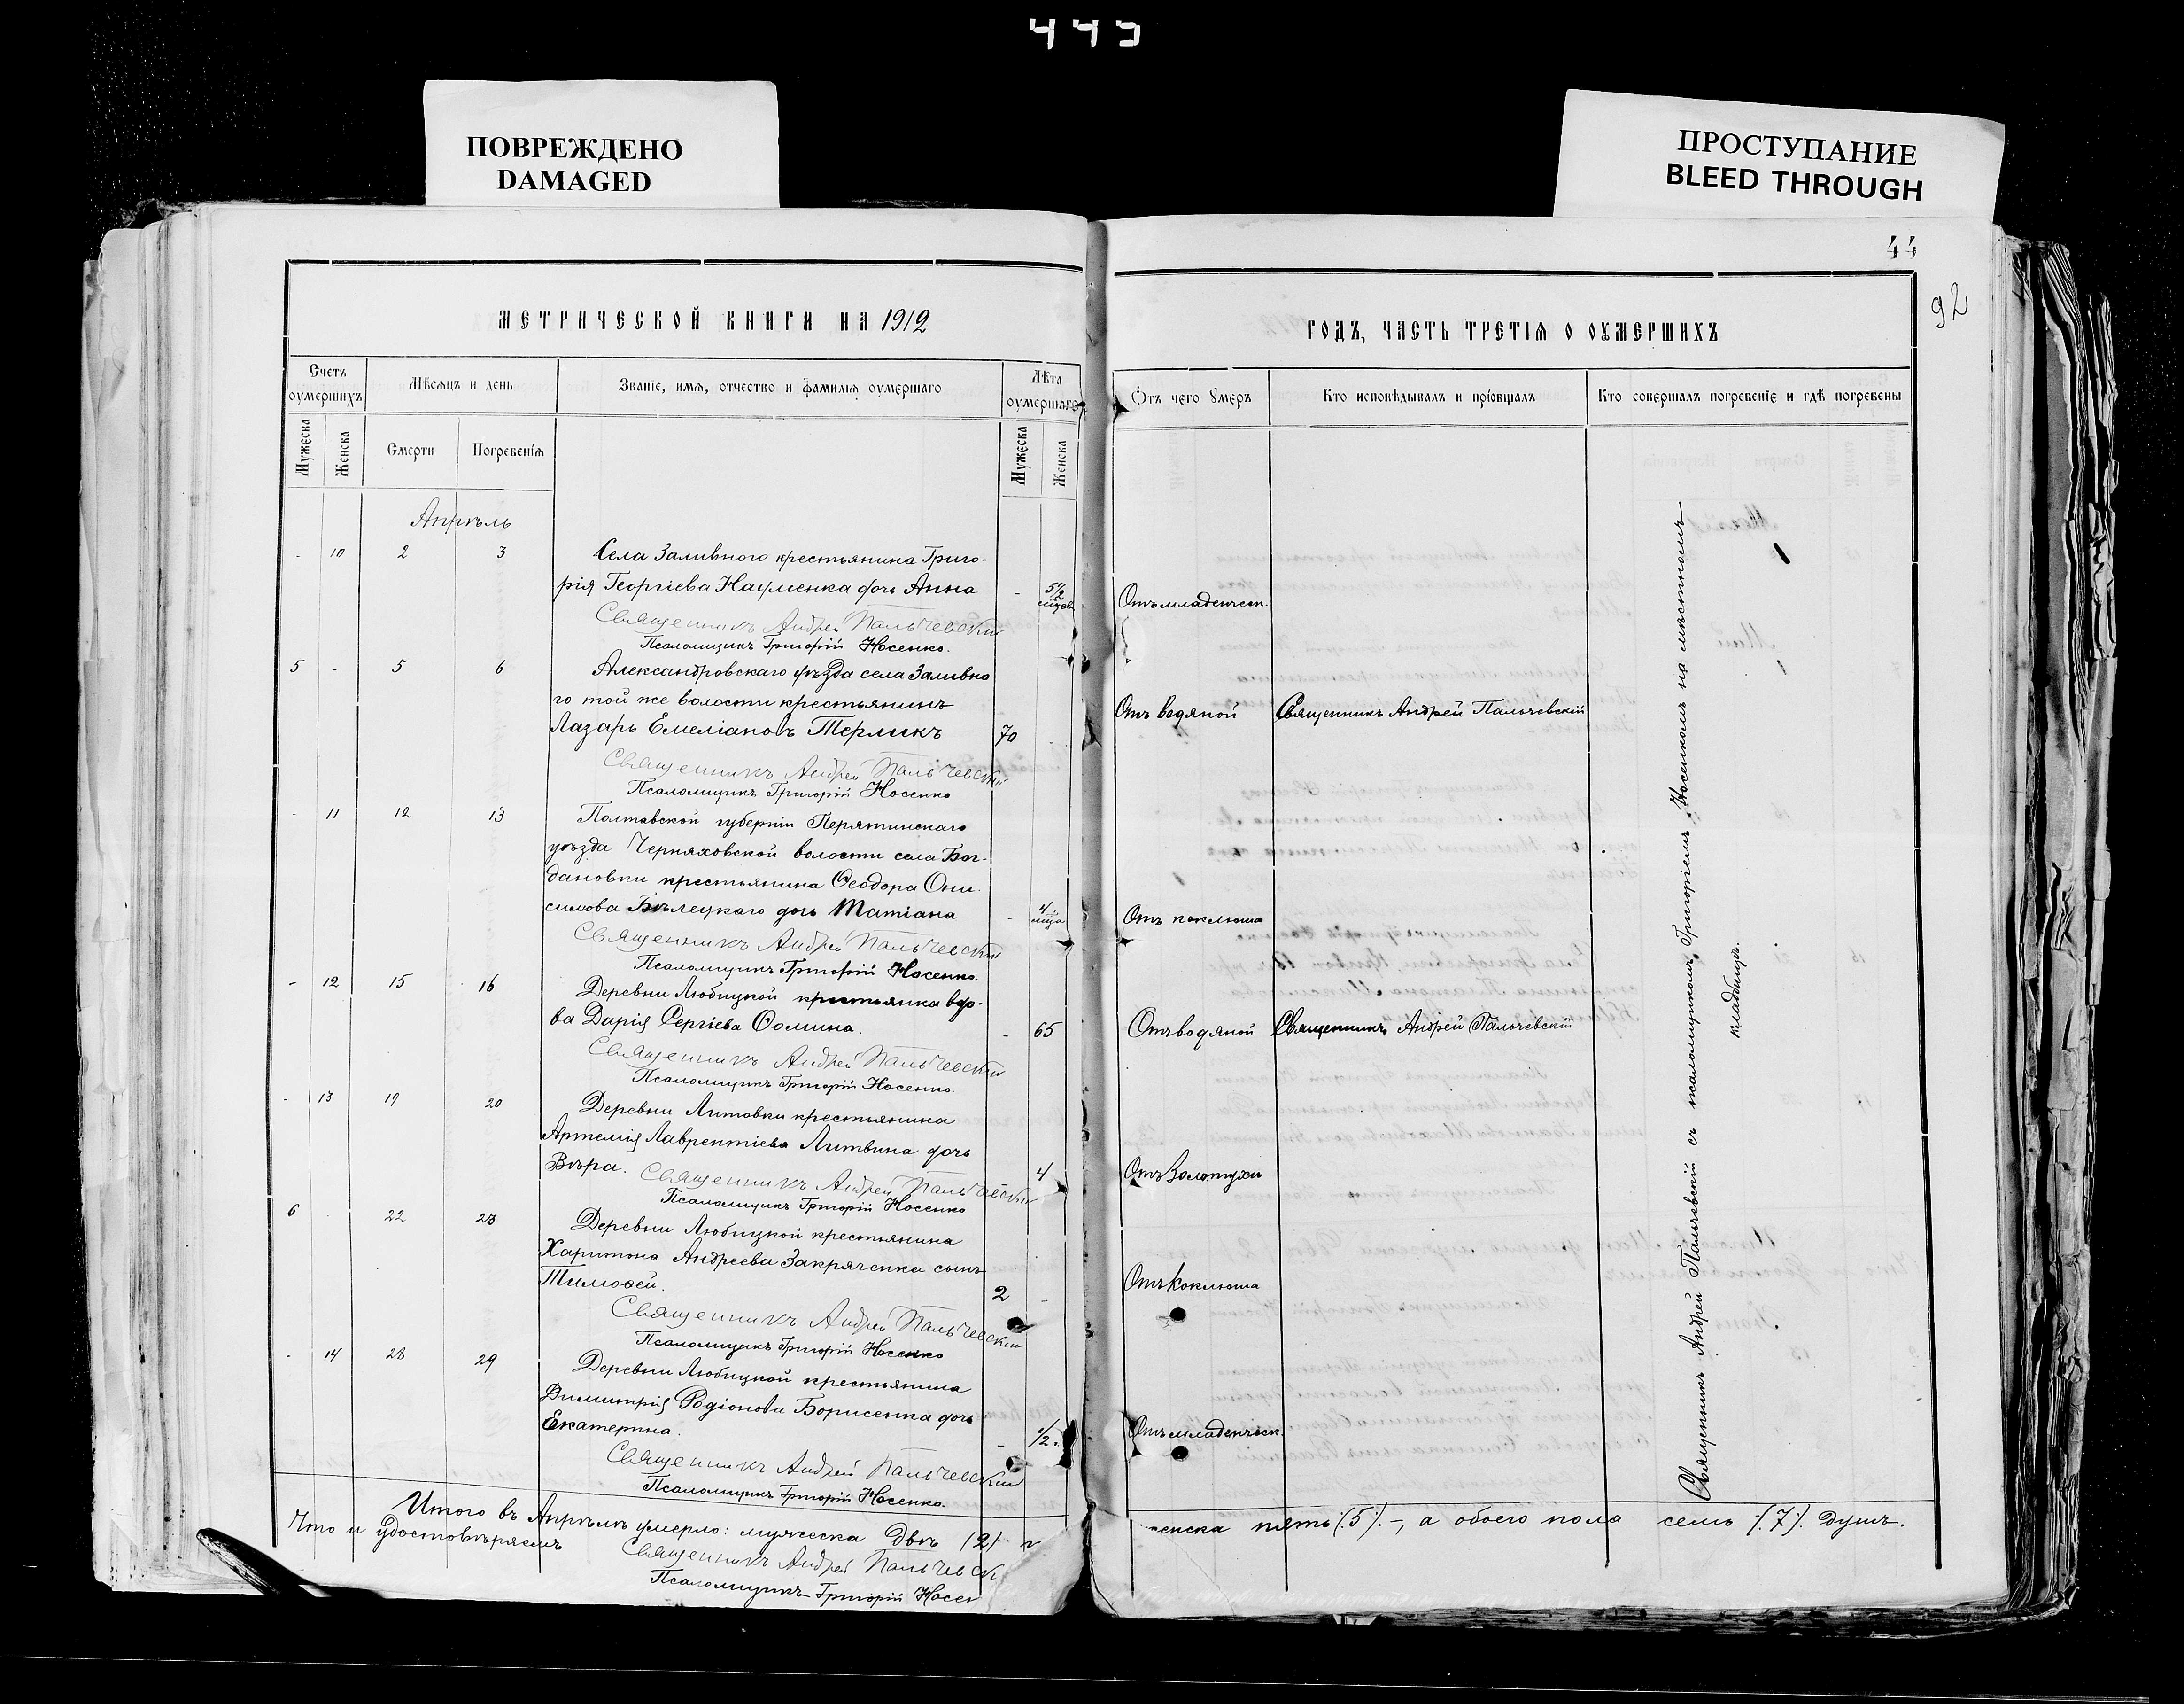 443
ПОВРЕЖДЕНО
DAMAGED
ПРОСТУПАНИЕ
BLEED THROUGH
44
92
МЕТРИЧЕСКОЙ КНИГИ НА 1912
ГОДЪ, ЧАСТЬ ТРЕТІЯ О ОУМЕРШИХЪ
Счетъ оумершихъ
Мѣсяцъ и день
Званіе, имя, отчество и фамилія оумершаго
Лѣта оумершаго
Отъ чего умеръ
Кто исповѣдывалъ и пріобщалъ
Кто совершалъ погребеніе и гдѣ погребены
Мужеска
Женска
Смерти
Погребенія
Мужеска
Женска
Апрѣль
- 10 2 3 Села Заливного крестьянина Григо-
рія Георгіева Науменка дочь Анна - 5 1/2 мѣсцовъ Отъ младенческ.
Священникъ Андрей Пальчевскій
Псаломщикъ Григорій Носенко.
5 - 5 6 Александровскаго уѣзда села Заливно
го той же волости крестьянинъ Отъ водяной Священникъ Андрей Пальчевскій
Лазарь Емеліановъ Терликъ 70 -
Священникъ Андрей Пальчевскій
Псаломщикъ Григорій Носенко
- 11 12 13 Полтавской губерніи Пирятинскаго
уѣзда Черняховской волости села Бог-
дановки крестьянина Ѳеодора Они-
симова Бѣлецкаго дочь Татіана - 4 мѣсца Отъ коклюша
Священникъ Андрей Пальчевскій
Псаломщикъ Григорій Носенко.
- 12 15 16 Деревни Любицкой крестьянка вдо-
ва Дарія Сергіева Ѳомина. - 65 Отъ водяной Священникъ Андрей Пальчевскій
Священникъ Андрей Пальчевскій
Псаломщикъ Григорій Носенко.
- 13 19 20 Деревни Литовки крестьянина
Артемія Лаврентіева Литвина дочь
Вѣра. 4 Отъ Золотухи
Священникъ Андрей Пальчевскій
Псаломщикъ Григорій Носенко
6 - 22 23 Деревни Любицкой крестьянина
Харитона Андреева Закряченка сынъ
Тимоѳей. 2 - Отъ Коклюша
Священникъ Андрей Пальчевскій
Псаломщикъ Григорій Носенко
- 14 28 29 Деревни Любицкой крестьянина
Димитрія Родіонова Борисенка дочь
Екатерина. - 1/2 Отъ младенческ.
Священникъ Андрей Пальчевскій
Псаломщикъ Григорій Носенко.
Священникъ Андрей Пальчевскій съ псаломщикомъ Григоріемъ Носенкомъ на мѣстномъ
кладбищѣ.
Итого въ Апрѣлѣ умерло: мужеска двѣ (2) и женска пять (5) -, а обоего пола семь (7) душъ.
Что и удостовѣряемъ
Священникъ Андрей Пальчевск
Псаломщикъ Григорій Носен